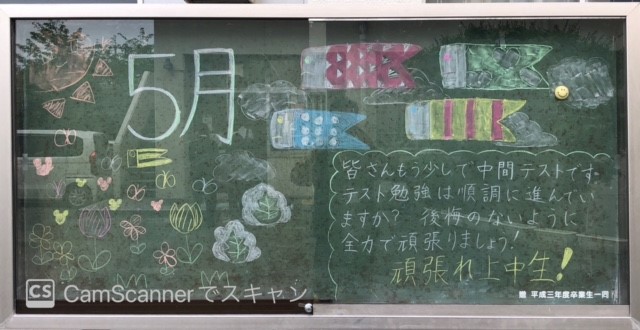 5月
皆さんもう少しで中間テストです。
テスト勉強は順調に進んでい
ますか? 後悔のないように
全力で頑張りましょう!
頑張れ上中生!
贈 平成三年度卒業生一同
CS CamScannerでスキャン